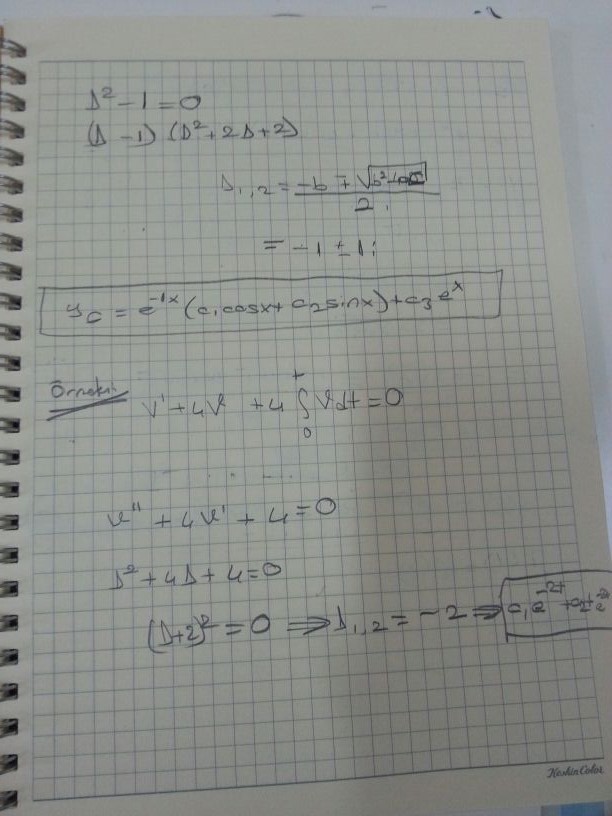 D² - 1 = 0
(D - 1) (D² + 2D + 2)
D₁,₂ = -b ∓ √b²-4ac / 2
= -1 ± 1i
y_c = e^-1x (c₁cosx + c₂sinx) + c₃e^x
Örnek:
v' + 4v + 4 ∫₀ᵗ v dt = 0
v'' + 4v' + 4 = 0
D² + 4D + 4 = 0
(D+2)² = 0 ⇒ D₁,₂ = -2 ⇒ c₁e^-2t + c₂te^-2t
KeskinColor